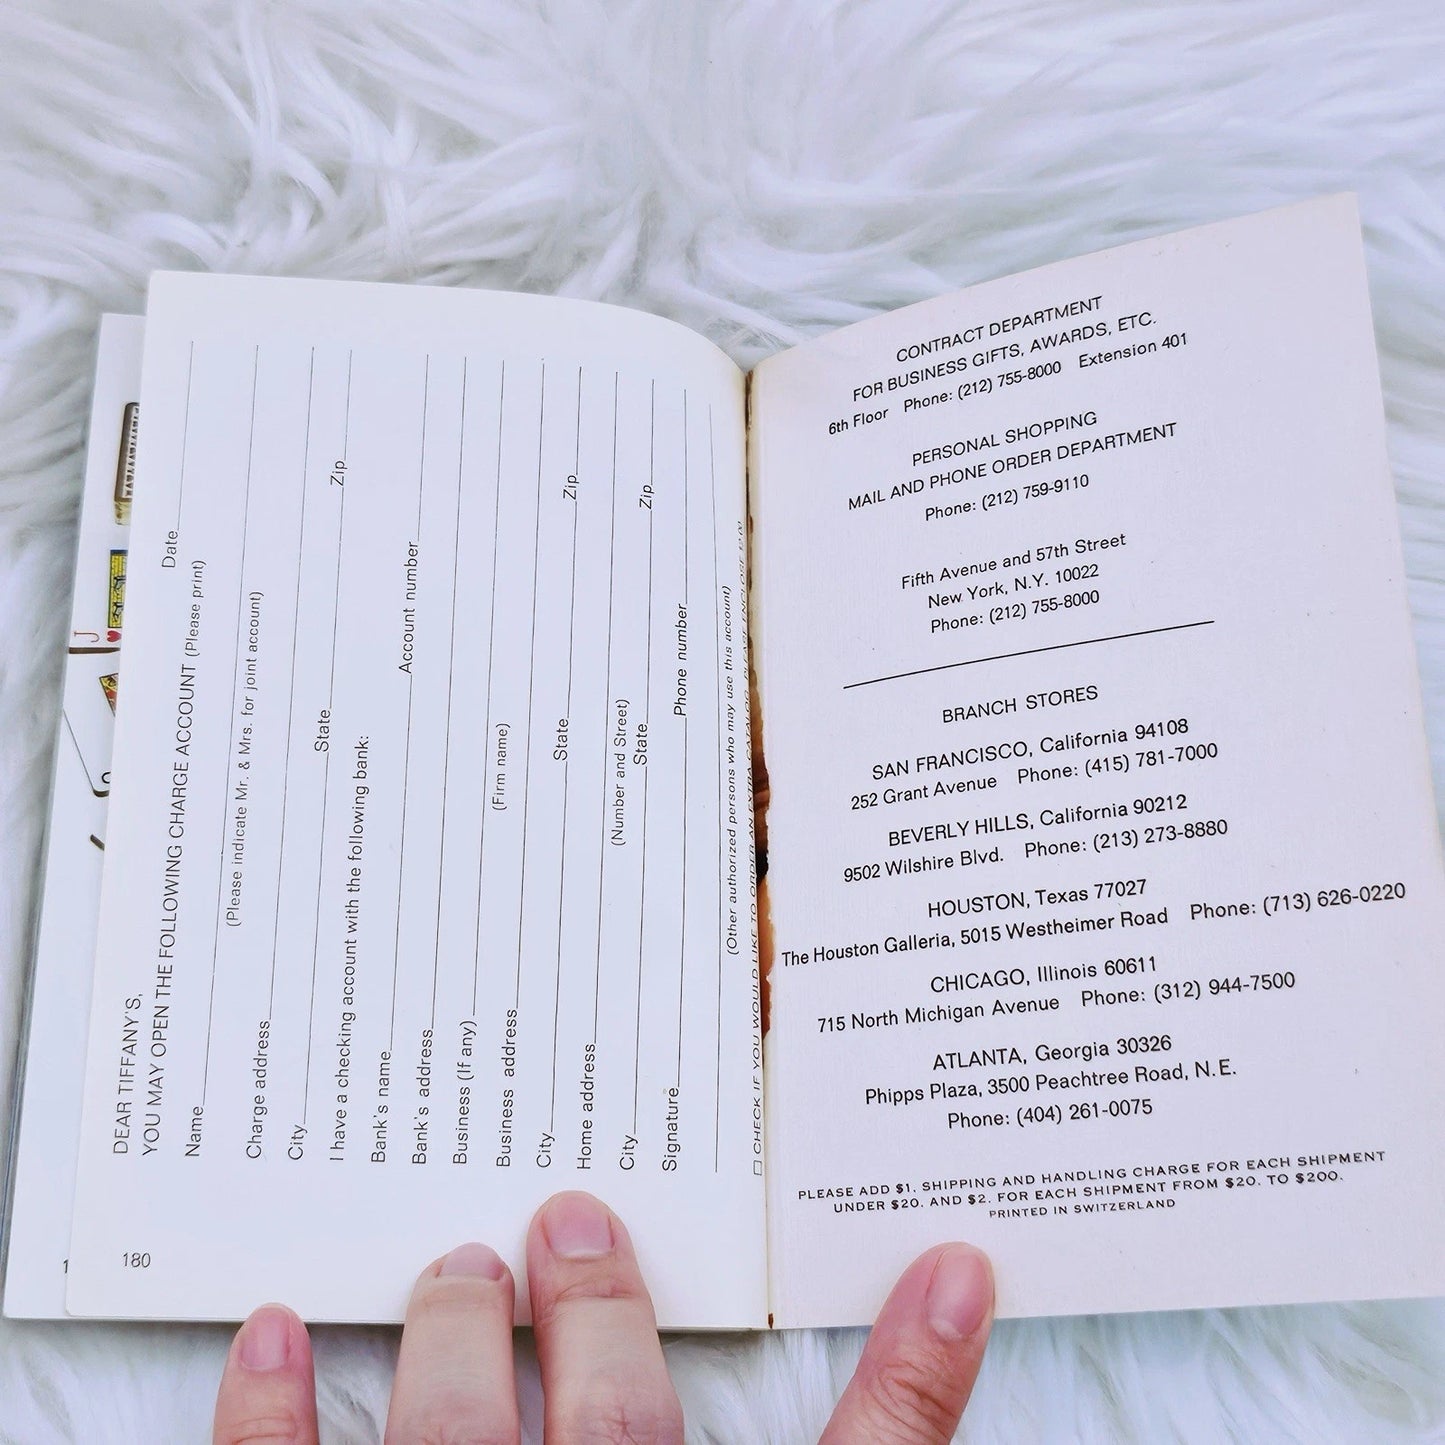 DEAR TIFFANY'S,
YOU MAY OPEN THE FOLLOWING CHARGE ACCOUNT (Please print) Date
Name
(Please indicate Mr. & Mrs. for joint account)
Charge address
City State Zip
I have a checking account with the following bank:
Bank's name
Bank's address Account number
Business (If any)
Business address
(Firm name)
City State Zip
Home address
(Number and Street)
City State Zip
Signature Phone number
(Other authorized persons who may use this account)
CHECK IF YOU WOULD LIKE TO ORDER AN EXTRA CATALOG, PLEASE ENCLOSE
180
J
CONTRACT DEPARTMENT
FOR BUSINESS GIFTS, AWARDS, ETC.
6th Floor Phone: (212) 755-8000 Extension 401
PERSONAL SHOPPING
MAIL AND PHONE ORDER DEPARTMENT
Phone: (212) 759-9110
Fifth Avenue and 57th Street
New York, N.Y. 10022
Phone: (212) 755-8000
BRANCH STORES
SAN FRANCISCO, California 94108
252 Grant Avenue Phone: (415) 781-7000
BEVERLY HILLS, California 90212
9502 Wilshire Blvd. Phone: (213) 273-8880
HOUSTON, Texas 77027
The Houston Galleria, 5015 Westheimer Road Phone: (713) 626-0220
CHICAGO, Illinois 60611
715 North Michigan Avenue Phone: (312) 944-7500
ATLANTA, Georgia 30326
Phipps Plaza, 3500 Peachtree Road, N.E.
Phone: (404) 261-0075
PLEASE ADD $1. SHIPPING AND HANDLING CHARGE FOR EACH SHIPMENT
UNDER $20. AND $2. FOR EACH SHIPMENT FROM $20. TO $200.
PRINTED IN SWITZERLAND